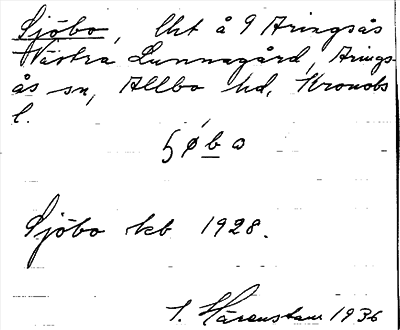 Sjöbo, lht å 9 Aringsås
Västra Lunnagård, Arings-
ås sn, Allbo hd, Kronobs
l.
Sjöbo kb 1928.
S. Härenstam 1936